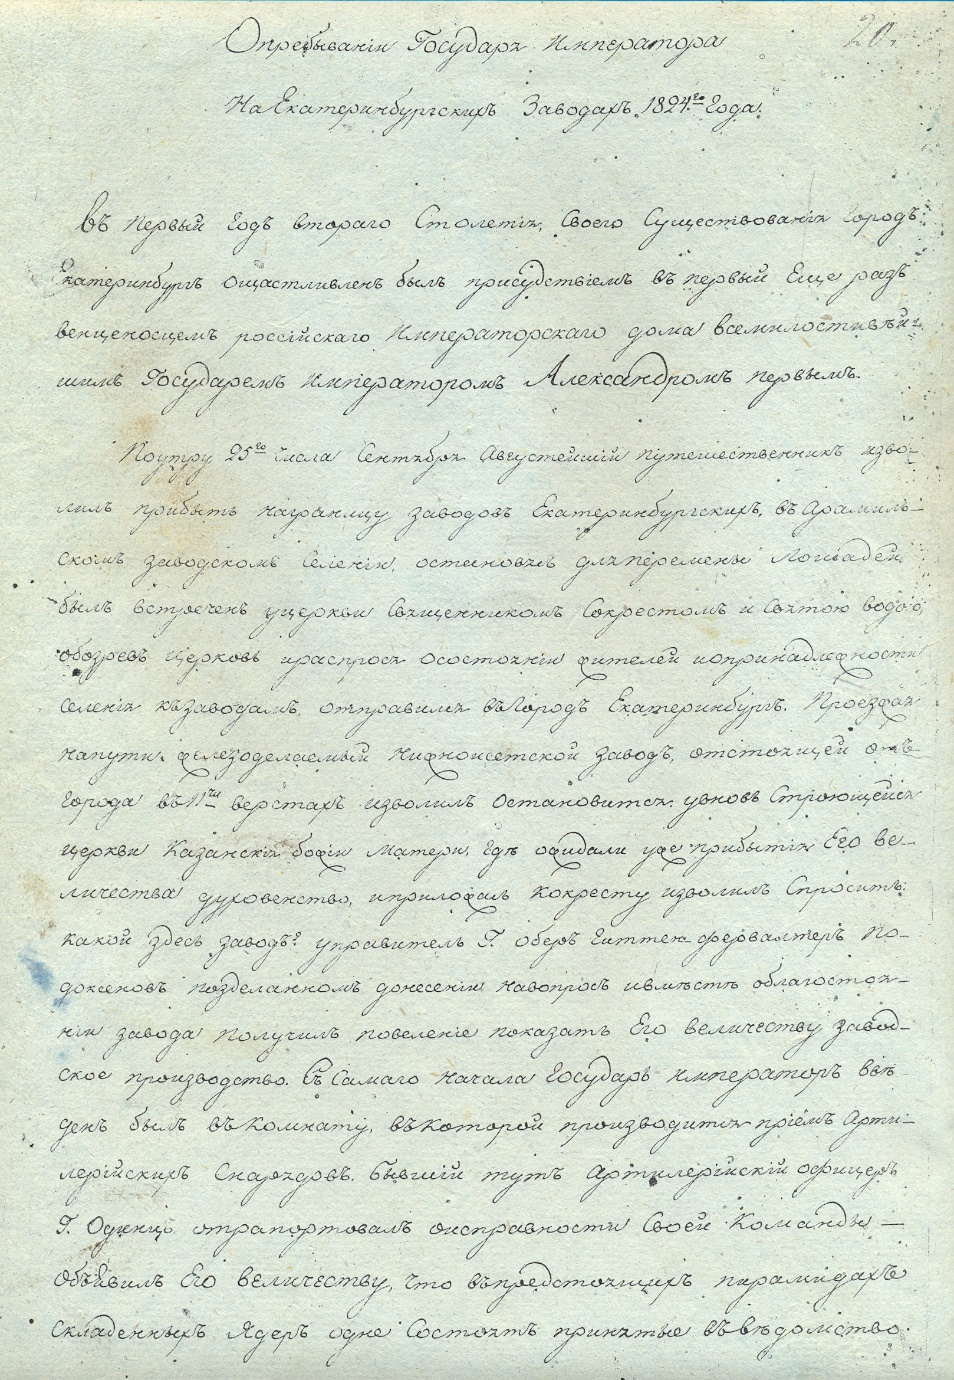 20.
Опребываніи Государя Императора
На Екатеринбургскихъ Заводахъ 1824.го Года.
Въ первый годъ втораго Столетія, Своего Существованія городъ
Екатеринбургъ ощастливленъ былъ присудствіемъ въ первый Еще разъ
венценосцемъ россійскаго Императорскаго дома всемилостивѣй-
шимъ Государемъ Императоромъ Александромъ первымъ.
Поутру 25го числа Сентября Августейшій путешественникъ изво-
лилъ прибыть награницу заводовъ Екатеринбургскихъ, въ Арамиль-
скомъ заводскомъ Селеніи, остановясь дляперемены Лошадей,
былъ встреченъ уцеркви Священникомъ Сокрестомъ и Святою водою,
обозревъ церковь ираспрося осостояніи жителей ипринадлежности
Селенія къзаводамъ, отправился въГородъ Екатеринбургъ. Проезжая
напути железоделаемый Нижноисетской заводъ, отстоящей отъ
Города въ 11ти верстахъ изволилъ Остановится, увновь Строющейся
церкви Казанскія божіи Матери, гдѣ ожидали уже прибытія Его ве-
личества духовенство, иприложась кокресту изволилъ Спросить:
какой здесь заводъ? управитель Г. оберъ гиттен-ферванатеръ По-
доксеновъ поздѣланномъ донесеніи навопросъ ивмѣстѣ облагостоя-
ніи завода получилъ повеленіе показать Его величеству завод-
ское производство. Съ Самаго начала Государь императоръ вве-
денъ былъ въкомнату, въкоторой производится пріёмъ Арти-
лерійскихъ Снарядовъ. бывшій тутъ Артилерійскій офицеръ
Г. отрапортовалъ оисправности Своей Команды —
Объявилъ Его величеству, что въпредстоящихъ пирамидахъ
Складенныхъ Ядеръ одне Состоятъ принятые въвѣдомство